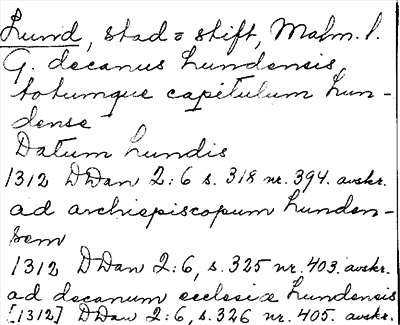 Lund, stad = stift, Malm. l.
G. decanus Lundensis
totumque capitulum Lun-
dense
Datum Lundis
1312 DDan 2:6 s. 318 nr. 394. avskr.
ad archiepiscopum Lunden-
sem
1312 DDan 2:6, s. 325 nr. 403. avskr.
ad decanum ecclesiæ Lundensis
[1312] DDan 2:6, s. 326 nr. 405. avskr.